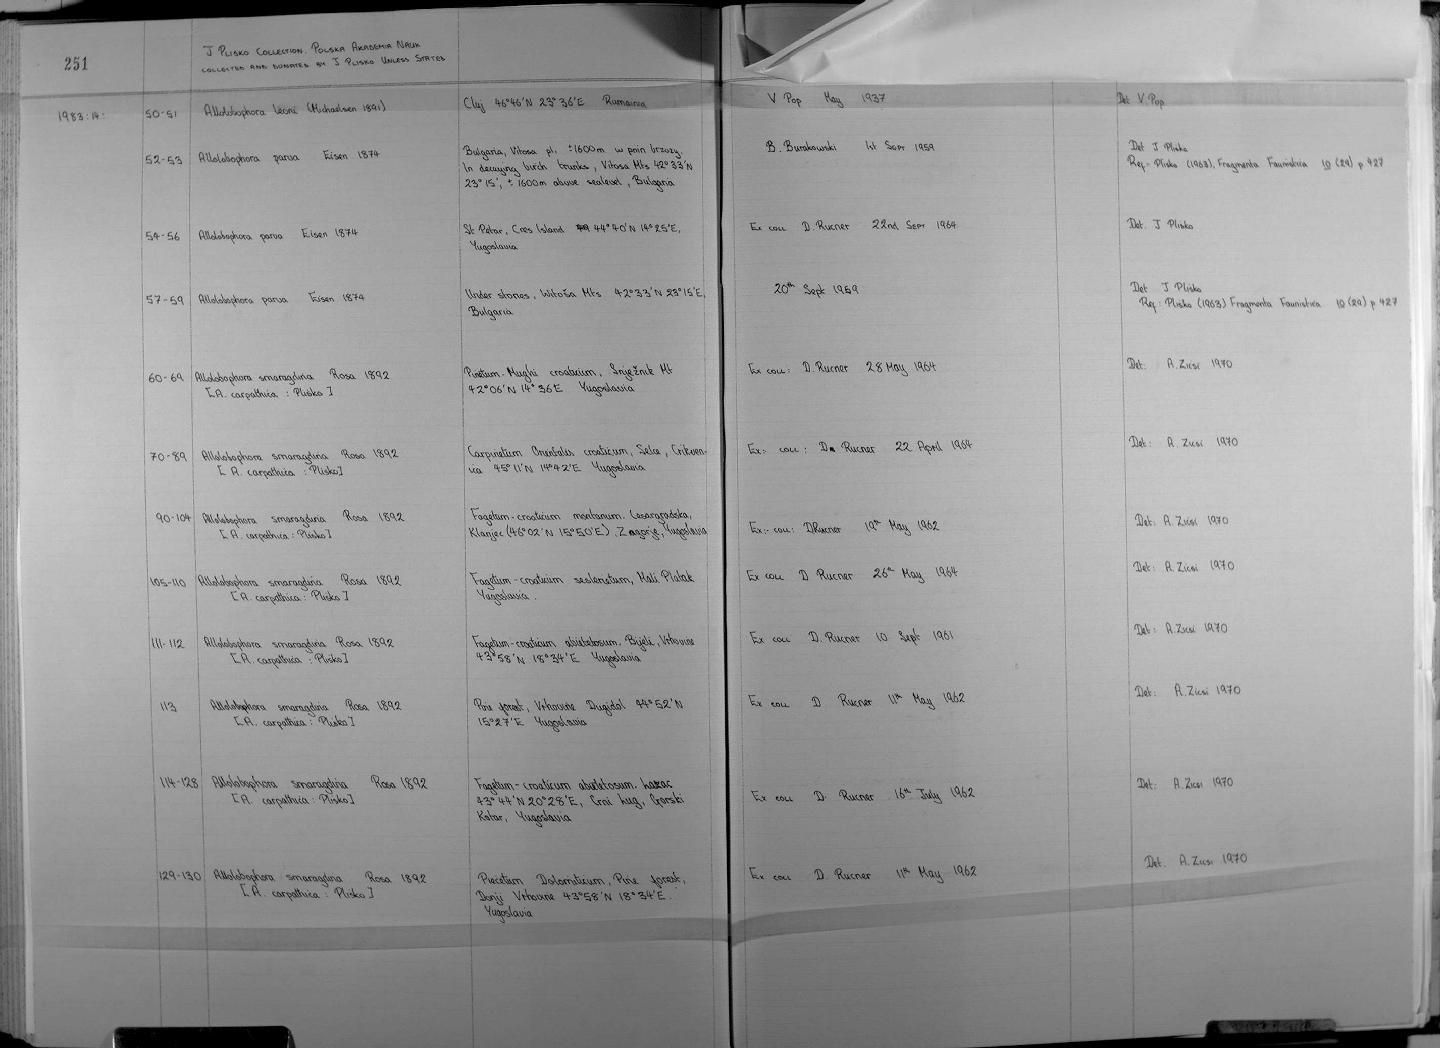 251
J PLISKO COLLECTION. POLSKA AKADEMIA NAUK
COLLECTED AND DONATED BY J PLISKO UNLESS STATED
1983:14: 50-51 Allolobophora leoni (Michaelsen 1891) Cluj 46°46'N 23°36'E Rumainia V Pop May 1937 Det V. Pop
52-53 Allolobophora parva Eisen 1874 Bulgaria, Vitosa pl. ±1600m w pnin brzozy. B. Burakowski 1st Sept 1959 Det J Plisko
In decaying birch trunks, Vitosa Mts 42°33'N Ref:- Plisko (1963), Fragmenta Faunistica 10 (29) p 427
23°15', ± 1600m above sealevel, Bulgaria
54-56 Allolobophora parva Eisen 1874 St Petar, Cres Island 44°40'N 14°25'E, Ex coll D. Rucner 22nd Sept 1964 Det. J Plisko
Yugoslavia
57-59 Allolobophora parva Eisen 1874 Under stones, Witoša Mts 42°33'N 23°15'E, 20th Sept 1959 Det J Plisko
Bulgaria Ref: Plisko (1963) Fragmenta Faunistica 10 (29) p 427
60-69 Allolobophora smaragdina Rosa 1892 Pinetum Mughi croaticum, Snježnik Mt Ex coll: D. Rucner 28 May 1964 Det: A. Zicsi 1970
[A. carpathica : Plisko] 42°06'N 14°36E Yugoslavia
70-89 Allolobophora smaragdina Rosa 1892 Carpinetum Orientalis croaticum, Selce, Crikven- Ex:- coll: D. Rucner 22 April 1964 Det: A. Zicsi 1970
[A. carpathica : Plisko] ica 45°11'N 14°42'E Yugoslavia
90-104 Allolobophora smaragdina Rosa 1892 Fagetum-croaticum montanum. Cesargradska, Ex:- coll: D Rucner 19th May 1962 Det: A. Zicsi 1970
[A. carpathica : Plisko] Klanjec (46°02'N 15°50'E). Zagorje, Yugoslavia
105-110 Allolobophora smaragdina Rosa 1892 Fagetum-croaticum seslerietum, Mali Platak Ex coll D Rucner 26th May 1964 Det: A. Zicsi 1970
[A. carpathica : Plisko] Yugoslavia.
111-112 Allolobophora smaragdina Rosa 1892 Fagetum-croaticum abietetosum. Bijeli, Vrhovine Ex coll D. Rucner 10 Sept 1961 Det: A. Zicsi 1970
[A. carpathica : Plisko] 43°58'N 18°34'E Yugoslavia
113 Allolobophora smaragdina Rosa 1892 Pine forest, Vrhovine Dugidol 44°52'N Ex coll D Rucner 11th May 1962 Det: A. Zicsi 1970
[A. carpathica : Plisko] 15°27'E Yugoslavia
114-128 Allolobophora smaragdina Rosa 1892 Fagetum-croaticum abietetosum. Lazac Ex coll D. Rucner 16th July 1962 Det: A. Zicsi 1970
[A. carpathica : Plisko] 43°44'N 20°28'E, Crni Lug, Gorski
Kotar, Yugoslavia
129-130 Allolobophora smaragdina Rosa 1892 Piceetum Dolomiticum, Pine forest, Ex coll D. Rucner 11th May 1962 Det. A. Zicsi 1970
[A. carpathica : Plisko] Donji Vrhovine 43°58'N 18°34'E.
Yugoslavia